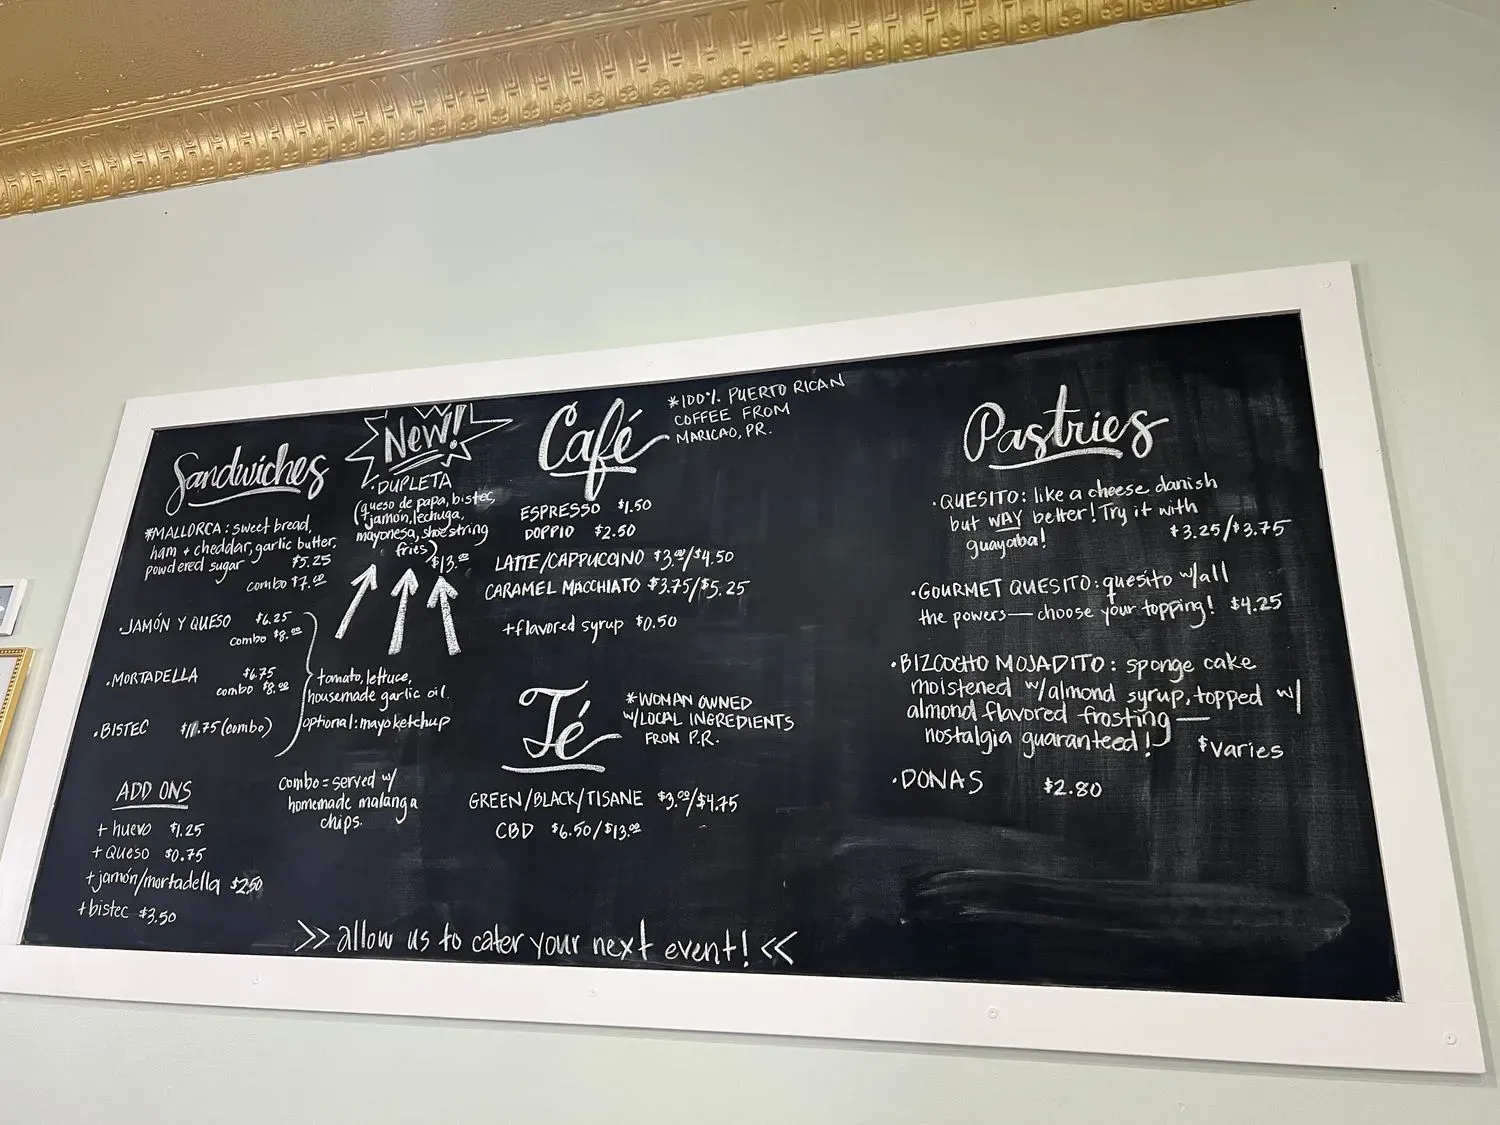 Sandwiches
*MALLORCA: sweet bread,
ham + cheddar, garlic butter,
powdered sugar $5.25
combo $7.00
•JAMÓN Y QUESO $6.25
combo $8.00
•MORTADELLA $6.75
combo $8.00
•BISTEC $11.75 (combo)
tomato, lettuce,
housemade garlic oil.
optional: mayoketchup
ADD ONS
+ huevo $1.25
+ queso $0.75
+ jamón/mortadella $2.50
+ bistec $3.50
Combo = served w/
homemade malanga
chips.
New!
•DUPLETA
(queso de papa, bistec,
jamón, lechuga,
mayonesa, shoestring
fries)
$13.00
Café
*100% PUERTO RICAN
COFFEE FROM
MARICAO, PR.
ESPRESSO $1.50
DOPPIO $2.50
LATTE/CAPPUCCINO $3.00/$4.50
CARAMEL MACCHIATO $3.75/$5.25
+flavored syrup $0.50
Té
*WOMAN OWNED
W/LOCAL INGREDIENTS
FROM P.R.
GREEN/BLACK/TISANE $3.00/$4.75
CBD $6.50/$13.00
Pastries
•QUESITO: like a cheese danish
but WAY better! Try it with
guayaba! $3.25/$3.75
•GOURMET QUESITO: quesito w/all
the powers—choose your topping! $4.25
•BIZCOCHO MOJADITO: sponge cake
moistened w/almond syrup, topped w/
almond flavored frosting—
nostalgia guaranteed! $varies
•DONAS $2.80
>> allow us to cater your next event! <<